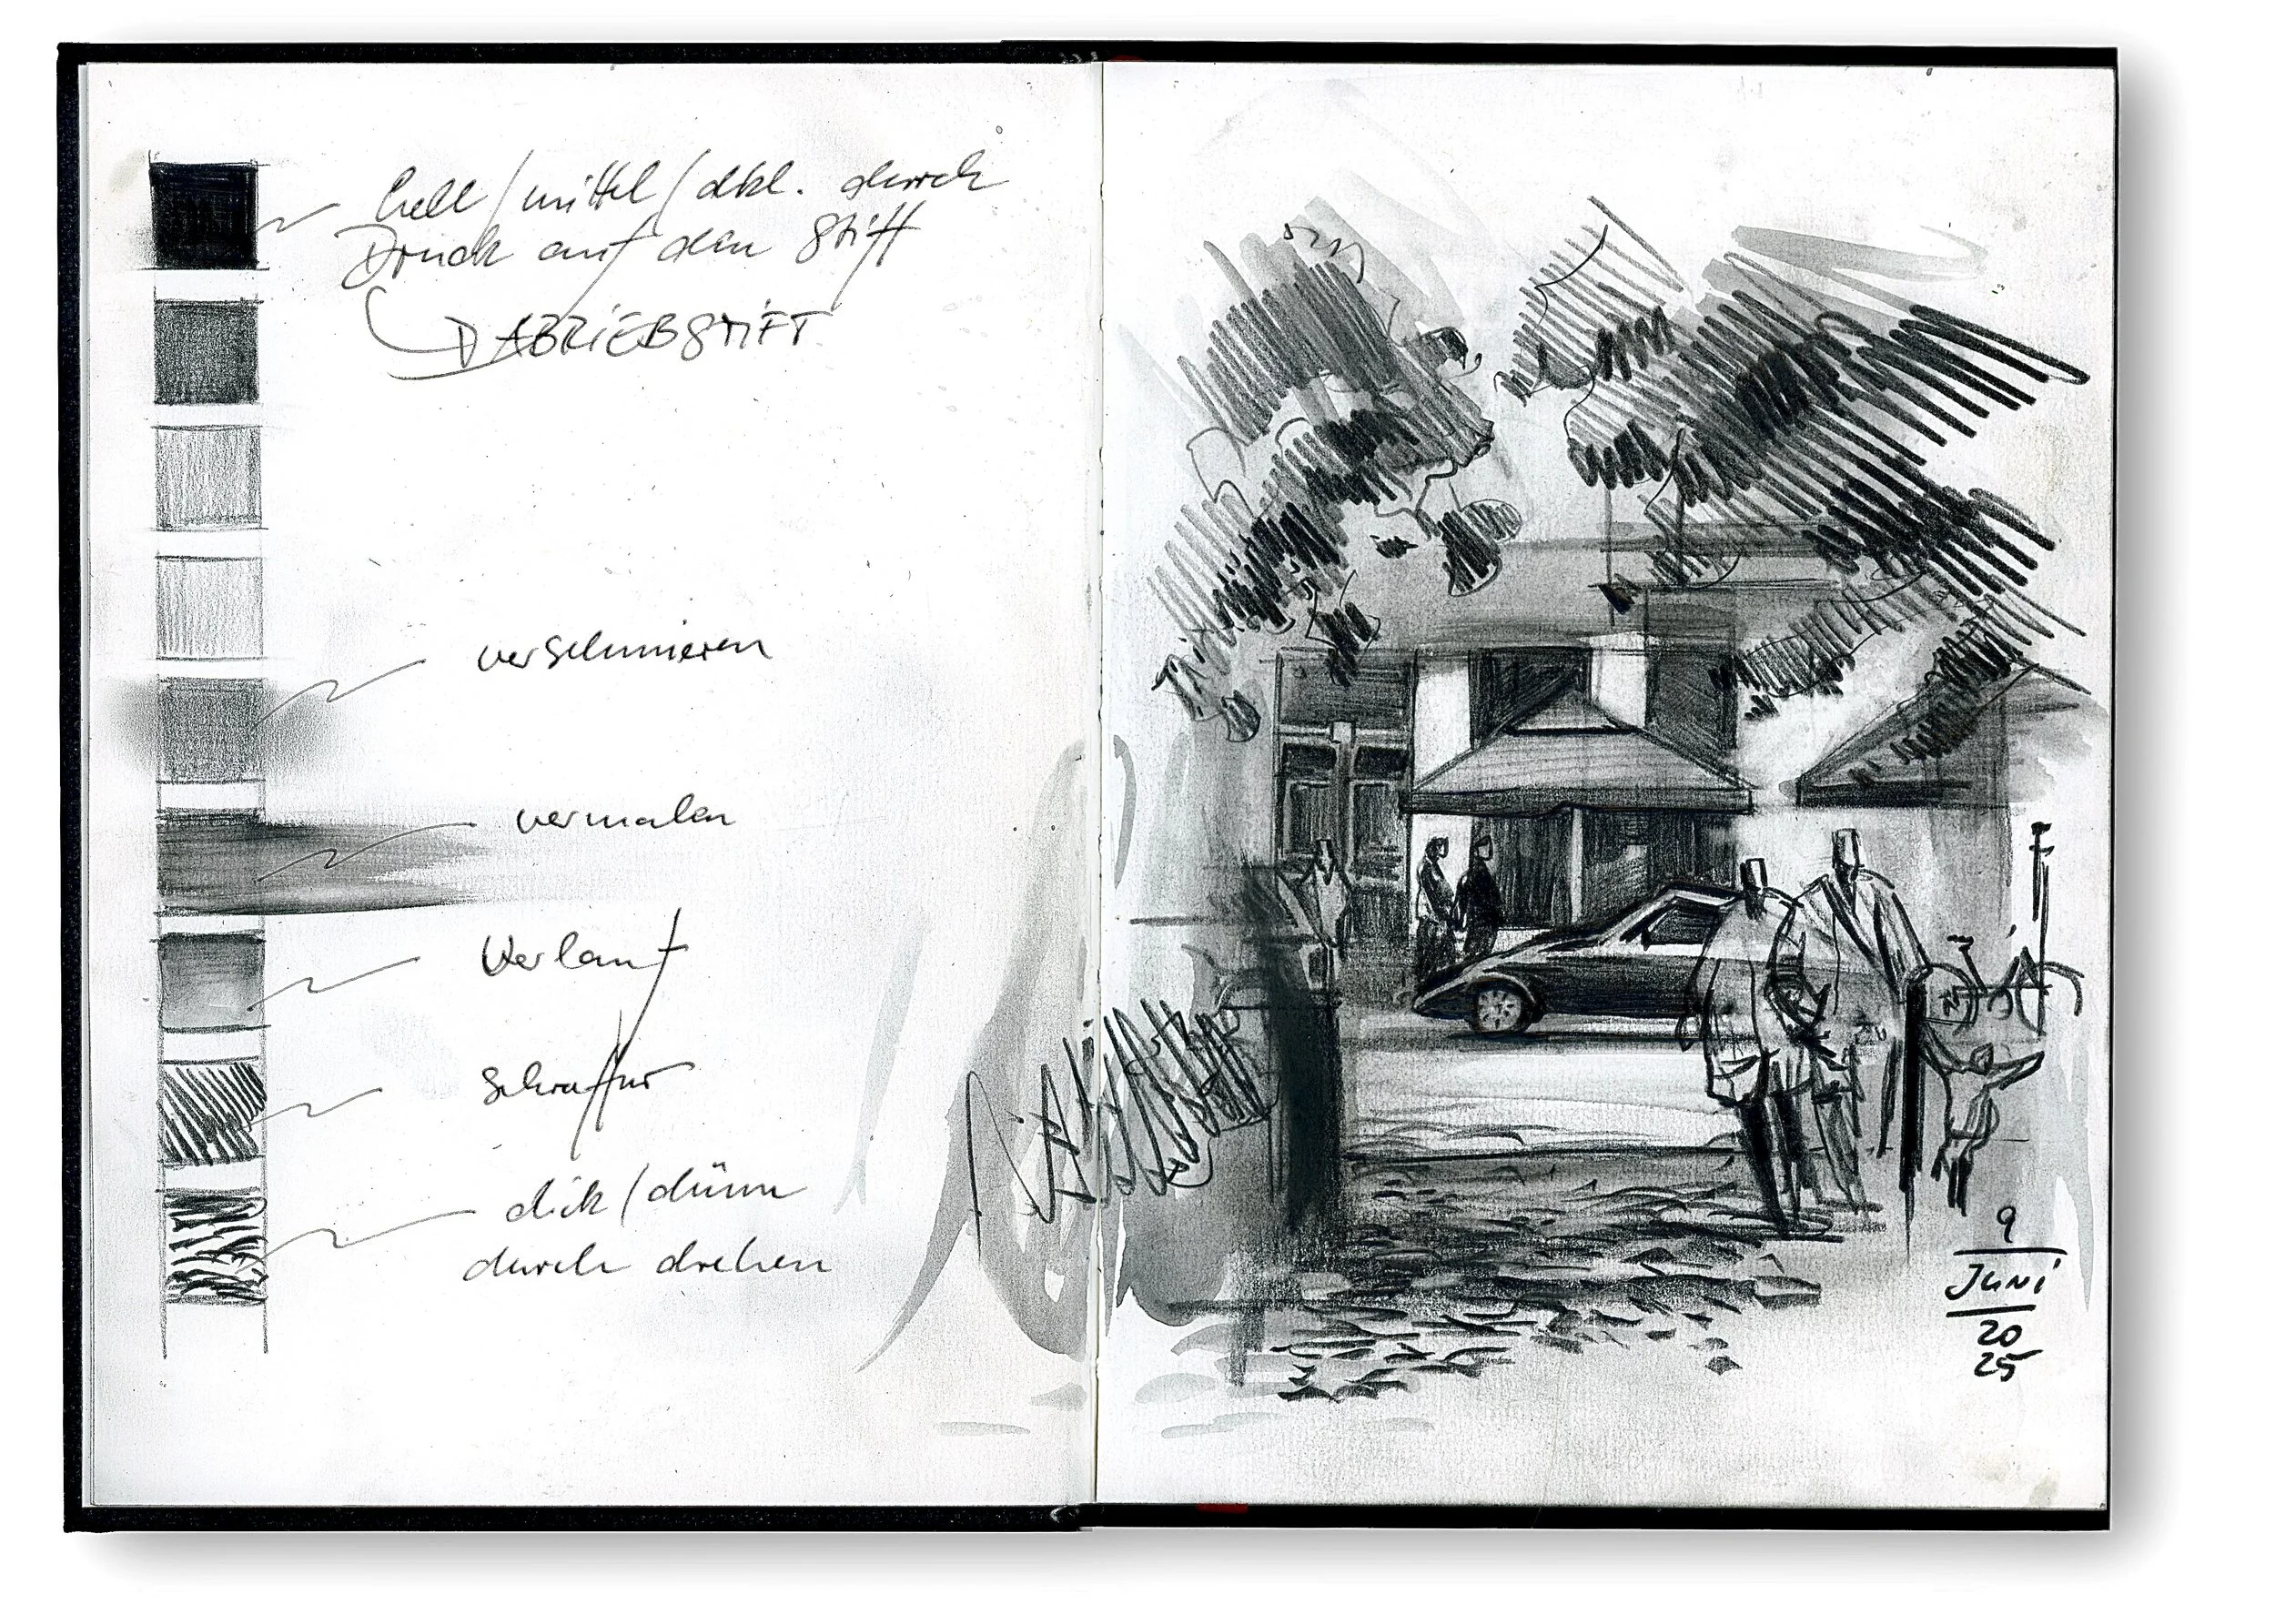 hell/mittel/dkl. durch
Druck auf den Stift
ABRIEBSTIFT
verschmieren
vermalen
Verlauf
Schraffur
dick/dünn
durch drehen
9
Juni
20
25